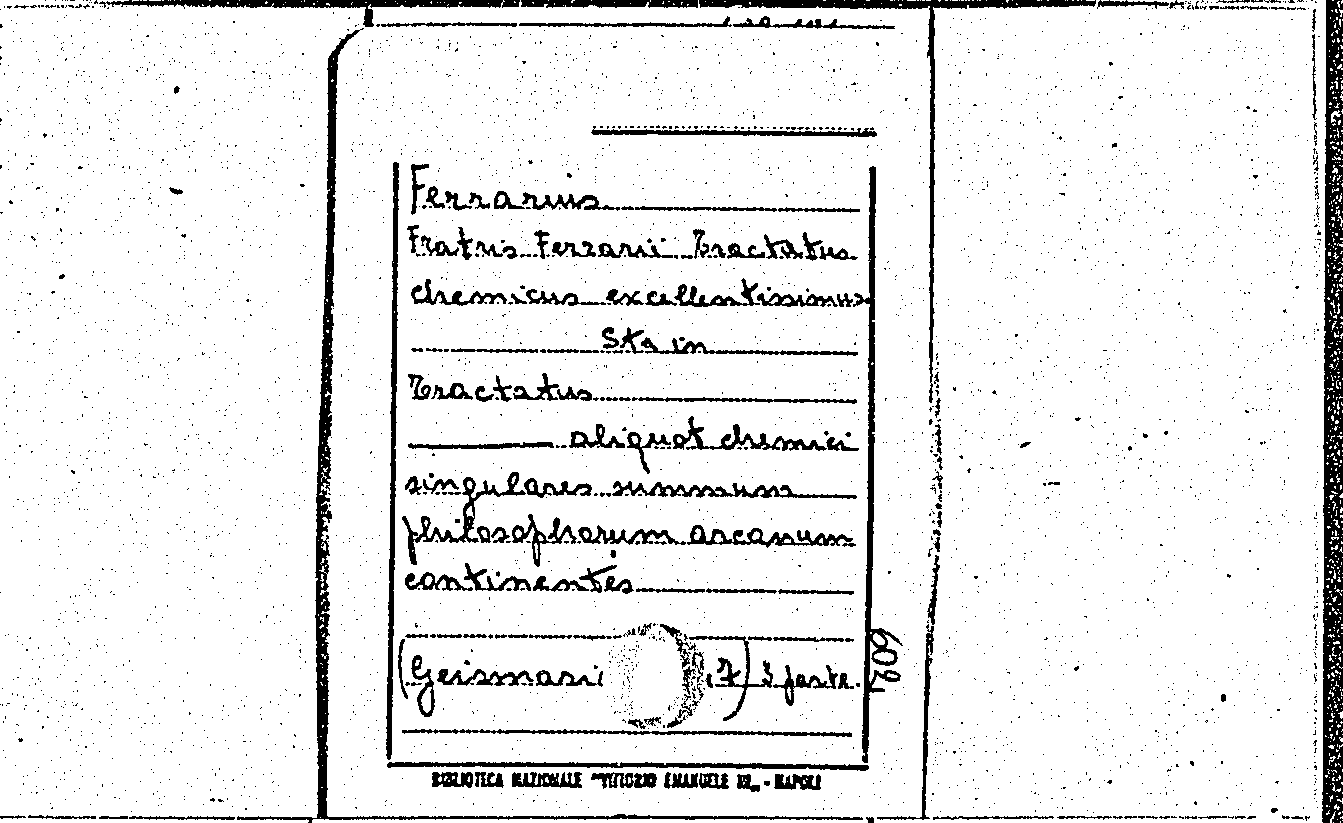 Ferrarius
Fratris Ferrarii Tractatus
chemicus excellentissimus
Sta in
Tractatus
aliquot chemici
singulares summum
philosophorum arcanum
continentes
(Geismari , 7) 3 parte.
602,
BIBLIOTECA NAZIONALE "VITTORIO EMANUELE III„ - NAPOLI